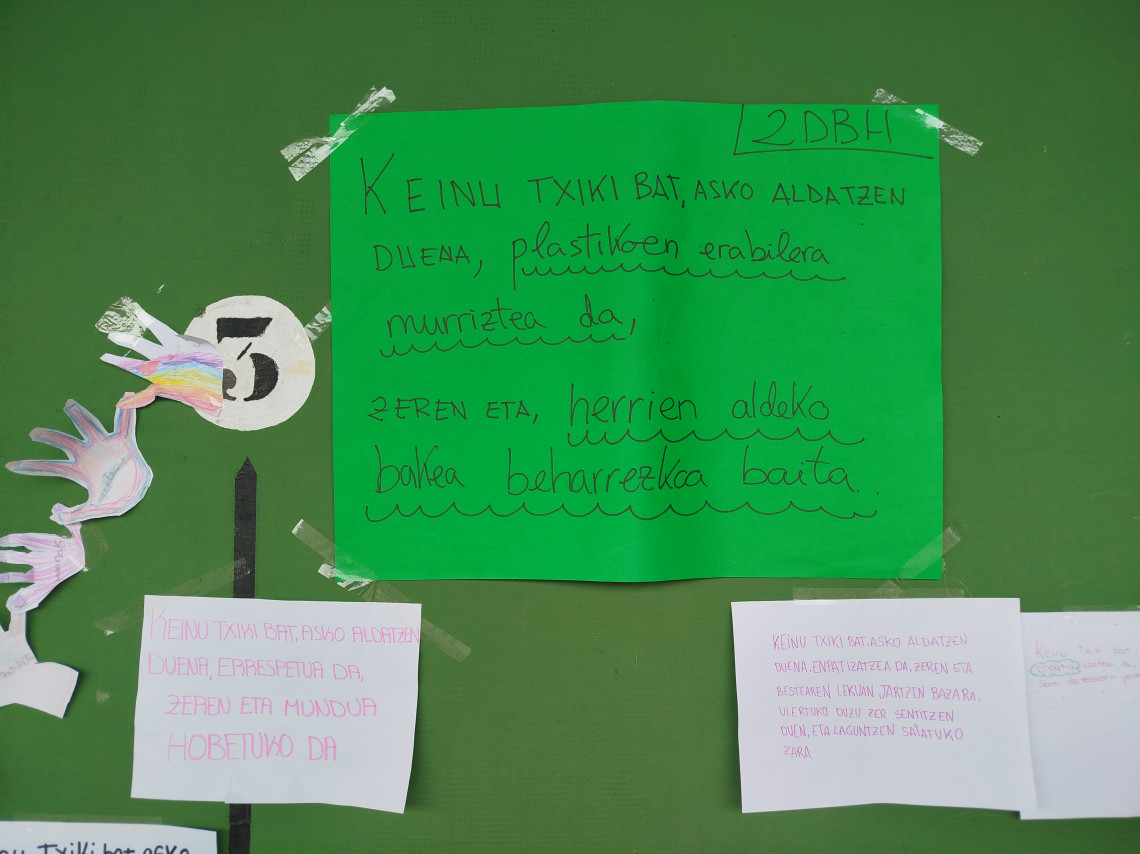 2DBH
KEINU TXIKI BAT, ASKO ALDATZEN
DUENA, plastikoen erabilera
murriztea da,
ZEREN ETA, herrien aldeko
bakea beharrezkoa baita..
5
KEINU TXIKI BAT, ASKO ALDATZEN
DUENA, ERRESPETUA DA,
ZEREN ETA MUNDUA
HOBETUKO DA
KEINU TXIKI BAT, ASKO ALDATZEN
DUENA, ENPATIZATZEA DA, ZEREN ETA
BESTEAREN LEKUAN JARTZIN BAZARA,
ULERTUKO DUZU ZER SENTITZEN
DUEN, ETA LAGUNTZEN SAIATUKO
ZARA
Keinu txiki bat,
Txiki bat asko